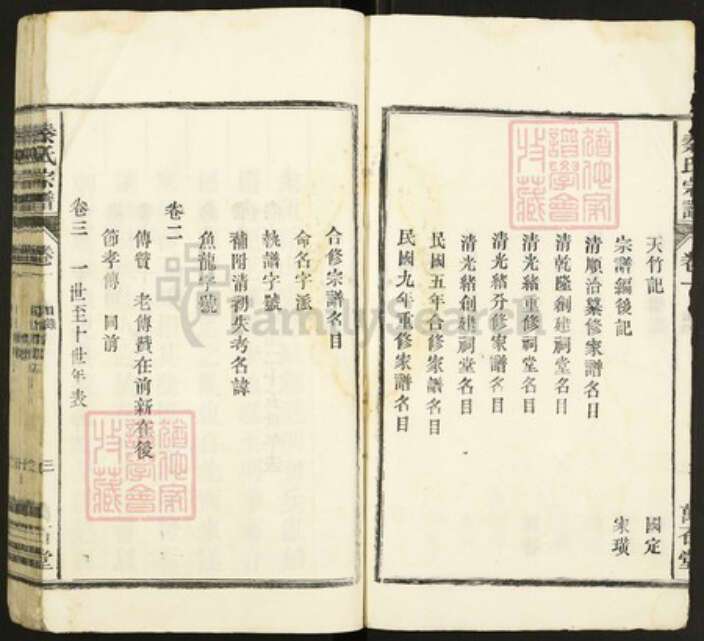 天竹記 國定
宗譜編後記 家璜
清順治纂修家譜名目
清乾隆創建祠堂名目
清光緒重修祠堂名目
清光緒分修家譜名目
清光緒創建祠堂名目
民國五年合修家譜名目
民國九年重修家譜名目
合修宗譜名目
命名字派
執譜字號
補附清初失考名諱
魚龍字號
卷二
傳贊 老傳贊在前新在後
節孝傳 同前
卷三 一世至十世年表
秦氏宗譜
卷一
目錄
三
FamilySearch